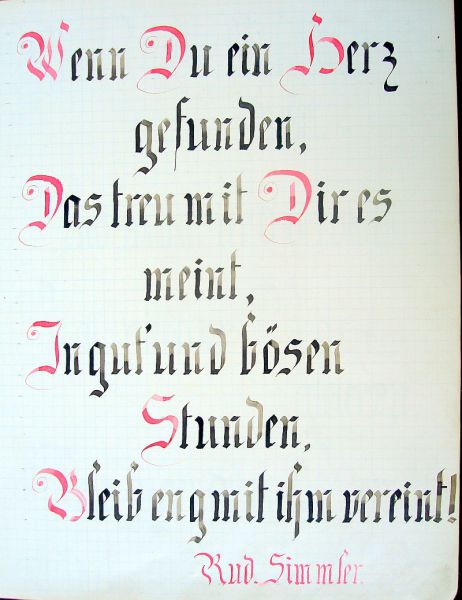 Wenn Du ein Herz
gefunden,
Das treu mit Dir es
meint,
In gut' und bösen
Stunden,
Bleib eng mit ihm vereint!
Rud. Simmler.